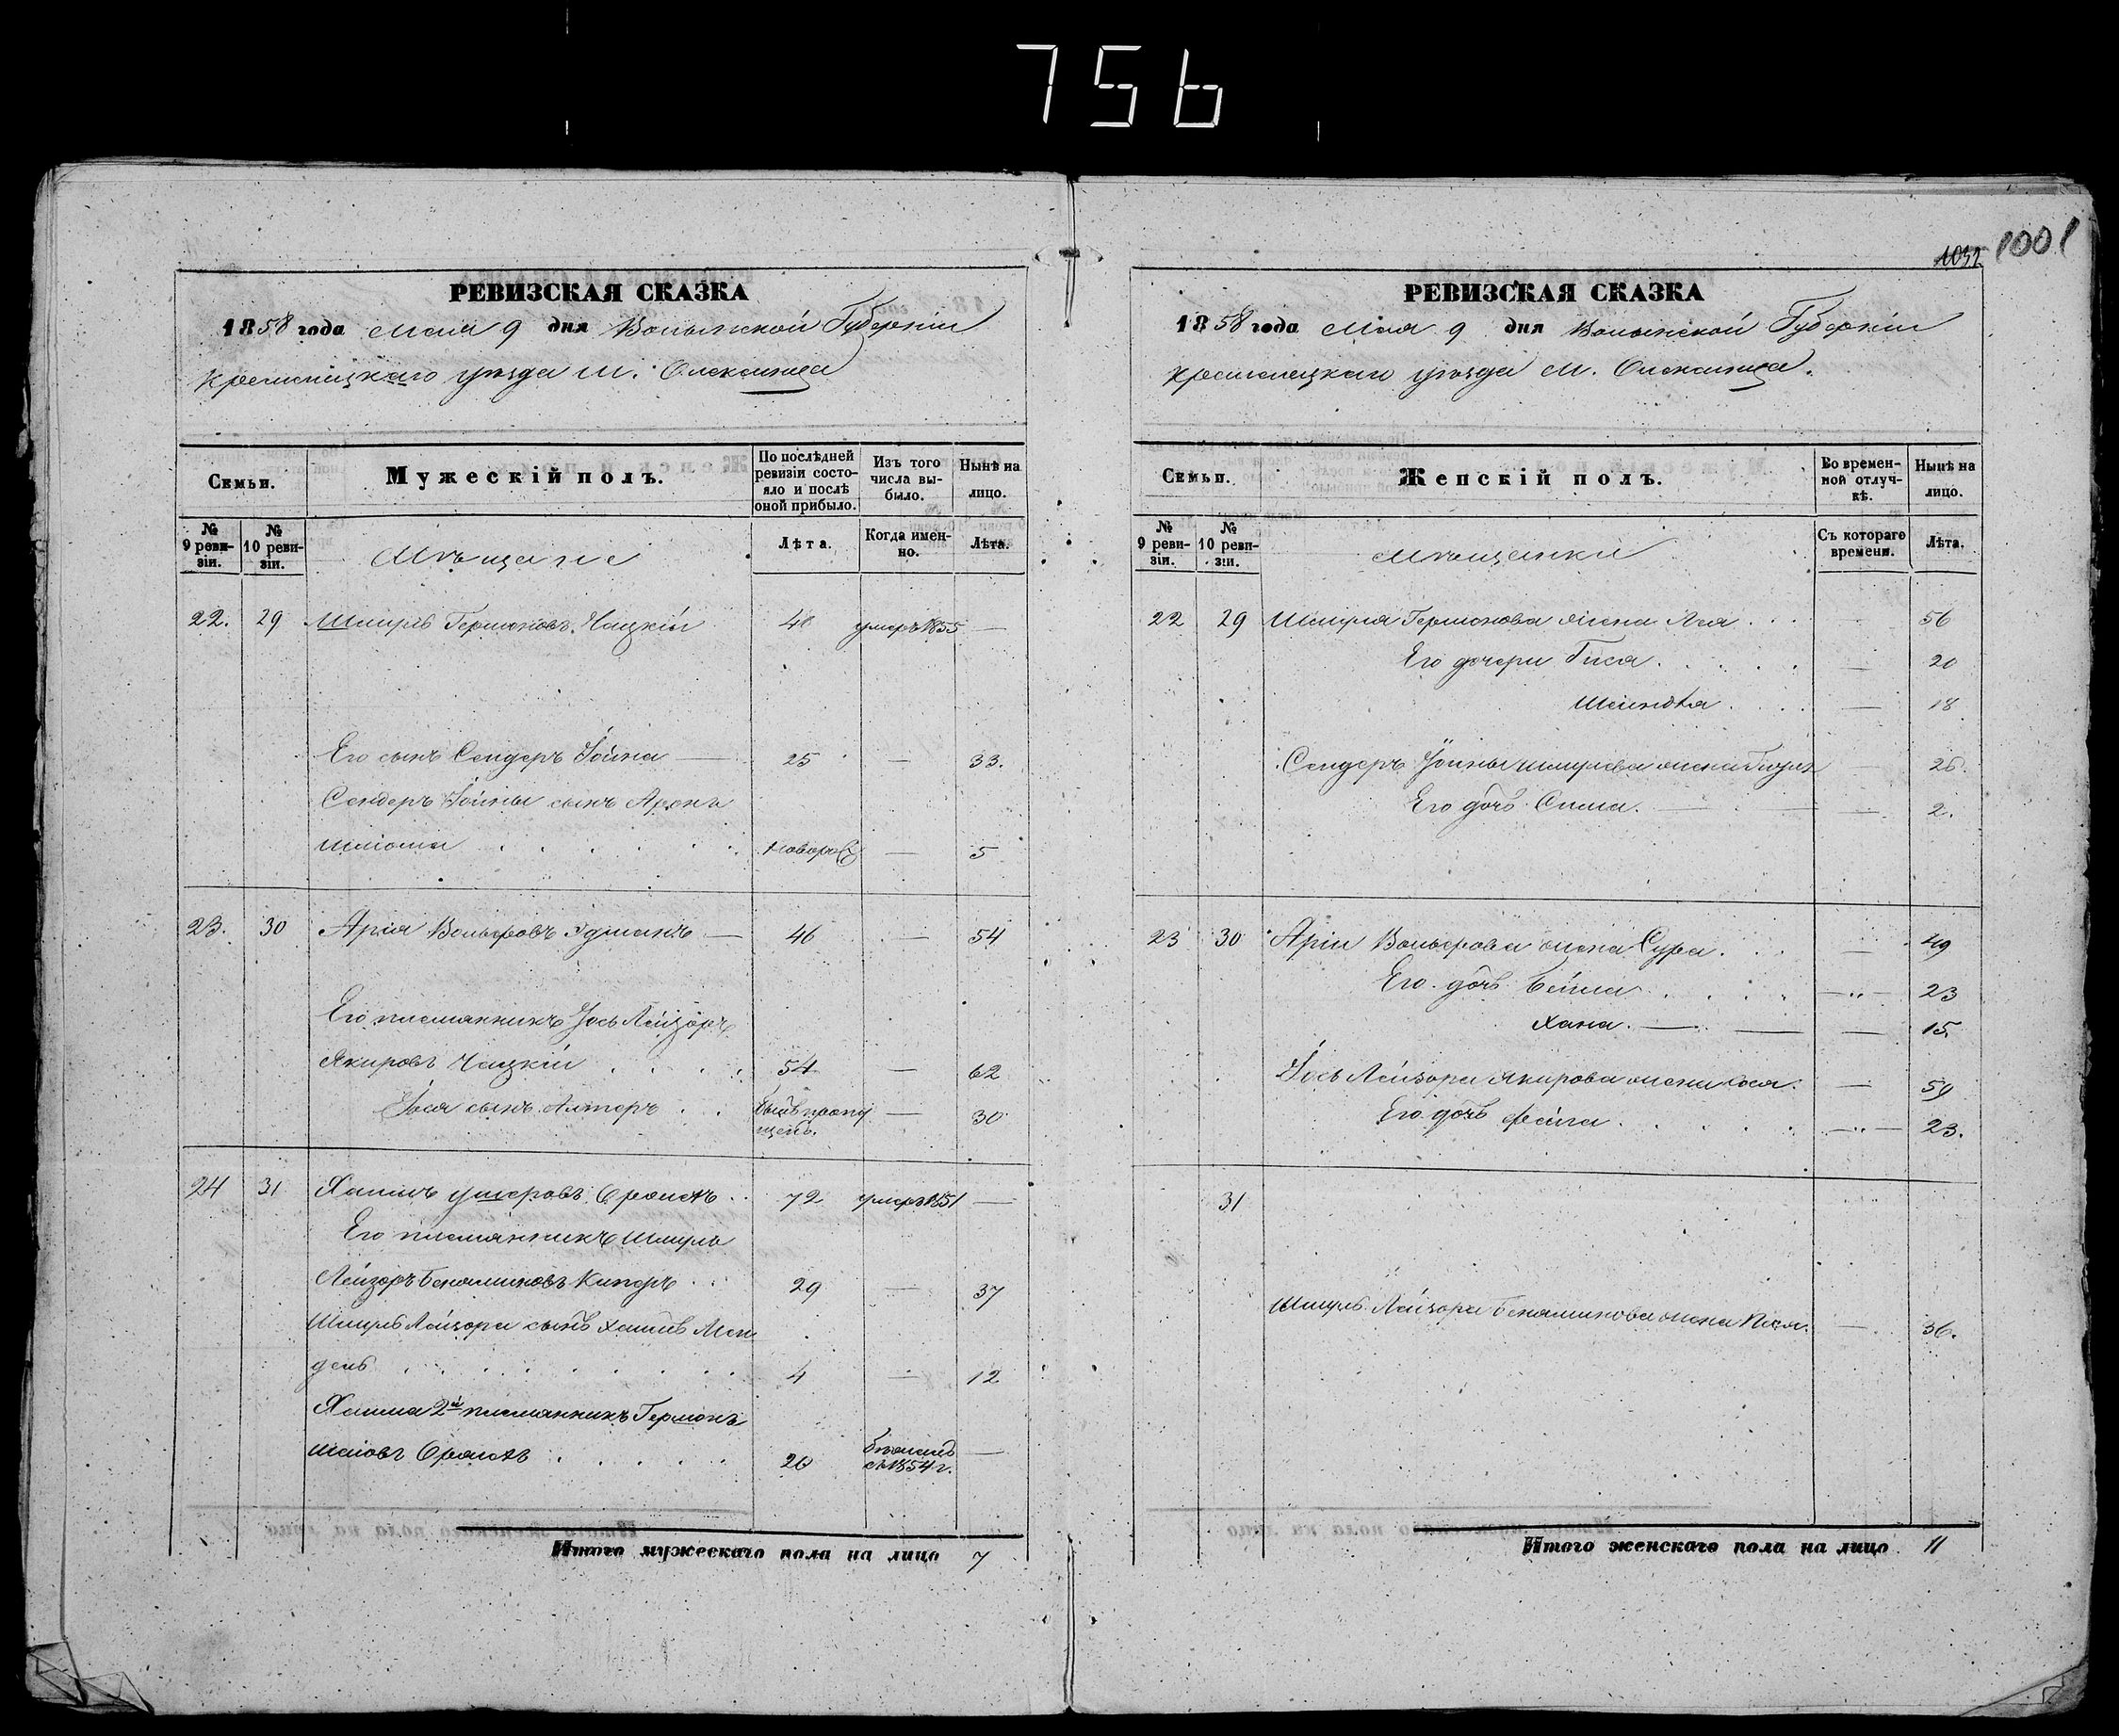 756
1001
1032
РЕВИЗСКАЯ СКАЗКА
1858 года мая 9 дня Волынской Губерніи
Кременецкаго уѣзда м. Олексинца
Семьи.
Мужескій полъ.
По послѣдней ревизіи состояло и послѣ оной прибыло.
Изъ того числа выбыло.
Нынѣ на лицо.
№ 9 ревизіи.
№ 10 ревизіи.
Мѣщане
Лѣта.
Когда именно.
Лѣта.
22. 29 Шмуль Гершоновъ Чацкій 48 умеръ 1855 —
Его сынъ Сендеръ Іойна — 25 — 33.
Сендеръ Іойны сынъ Аронъ
Шлiома новорож — 5
23. 30 Арія Вольфовъ — 46 — 54
Его племянникъ Іось Лейзоръ
Якировъ Чацкій 54 — 62
Іося сынъ Алтеръ былъ пропущенъ. — 30
24 31 Хаимъ 72 умеръ 1851 —
Его племянникъ Шмуль
Лейзоръ Беняминовъ 29 — 37
Шмуль Лейзора сынъ Хаимъ Мен
дель 4 — 12
Хаима 2й племянникъ Гершонъ
20 бѣжалъ съ 1854 г. —
Итого мужескаго пола на лицо 7
РЕВИЗСКАЯ СКАЗКА
1858 года Мая 9 дня Волынской Губерніи
Кременецкаго уѣзда М. Олексинца.
Семьи.
Женскій полъ.
Во временной отлучкѣ.
Нынѣ на лицо.
№ 9 ревизіи.
№ 10 ревизіи.
Мѣщанки
Съ котораго времени.
Лѣта.
22 29 Шмуля Гершонова жена Лея — 56
Его дочери Гися — 20
— 18
Сендеръ Іойны Шмулева жена — 26.
Его дочь Сима. — 2.
23 30 Аріи Вольфова жена Сура — 49
Его дочь Бейла —"— 23
Хана. — 15.
Іось Лейзора Якирова жена Хося — 59
Его дочь Фейга —"— 23.
31
Шмуль Лейзора Беняминова жена Песя — 36.
Итого женскаго пола на лицо 11